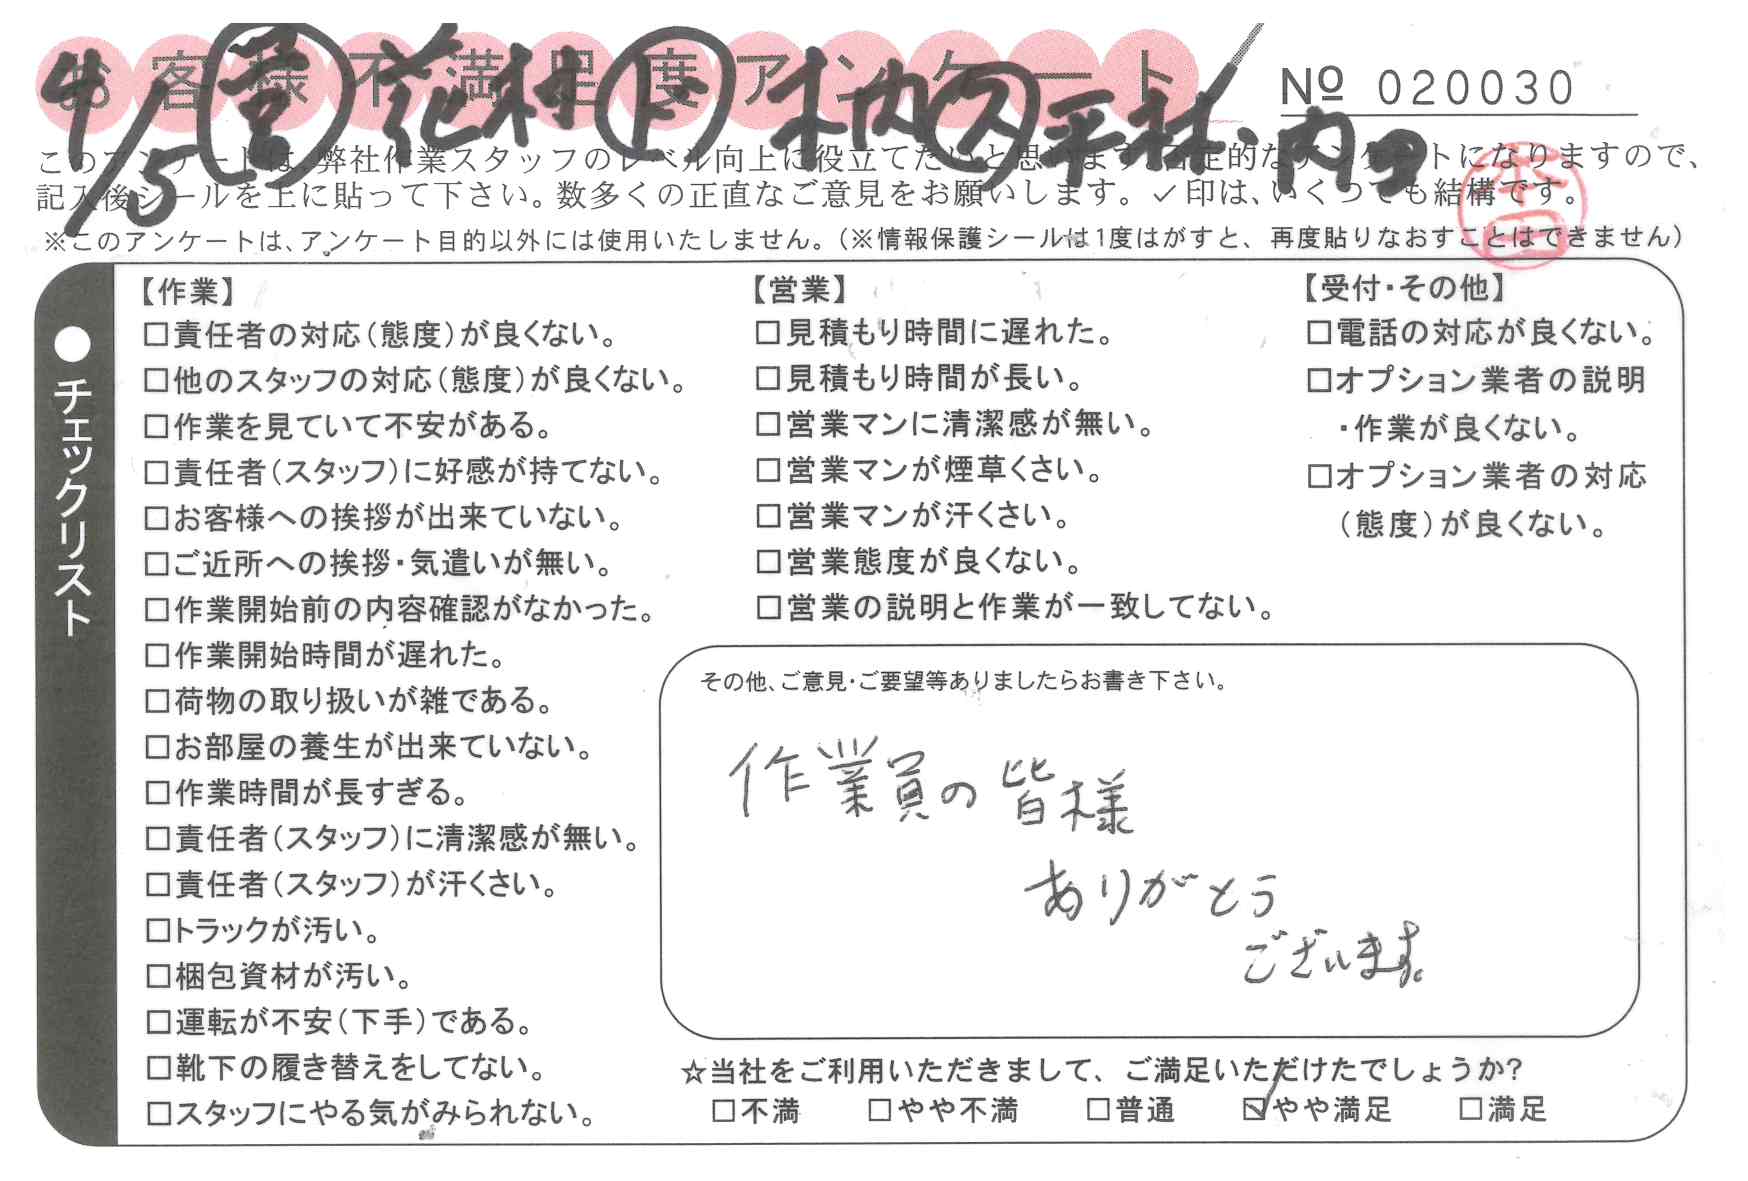 お客様不満足度アンケート
4/5 営 花村 ト 木内 ス 平林 内田
№ 020030
このアンケートは、弊社作業スタッフのレベル向上に役立てたいと思います。否定的なアンケートになりますので、
記入後シールを上に貼って下さい。数多くの正直なご意見をお願いします。✓印は、いくつでも結構です。
※このアンケートは、アンケート目的以外には使用いたしません。(※情報保護シールは1度はがすと、再度貼りなおすことはできません)
●チェックリスト
【作業】
□責任者の対応(態度)が良くない。
□他のスタッフの対応(態度)が良くない。
□作業を見ていて不安がある。
□責任者(スタッフ)に好感が持てない。
□お客様への挨拶が出来ていない。
□ご近所への挨拶・気遣いが無い。
□作業開始前の内容確認がなかった。
□作業開始時間が遅れた。
□荷物の取り扱いが雑である。
□お部屋の養生が出来ていない。
□作業時間が長すぎる。
□責任者(スタッフ)に清潔感が無い。
□責任者(スタッフ)が汗くさい。
□トラックが汚い。
□梱包資材が汚い。
□運転が不安(下手)である。
□靴下の履き替えをしてない。
□スタッフにやる気がみられない。
【営業】
□見積もり時間に遅れた。
□見積もり時間が長い。
□営業マンに清潔感が無い。
□営業マンが煙草くさい。
□営業マンが汗くさい。
□営業態度が良くない。
□営業の説明と作業が一致してない。
【受付・その他】
□電話の対応が良くない。
□オプション業者の説明
・作業が良くない。
□オプション業者の対応
(態度)が良くない。
その他、ご意見・ご要望等ありましたらお書き下さい。
作業員の皆様
ありがとう
ございます。
☆当社をご利用いただきまして、ご満足いただけたでしょうか?
□不満 □やや不満 □普通 ☑やや満足 □満足